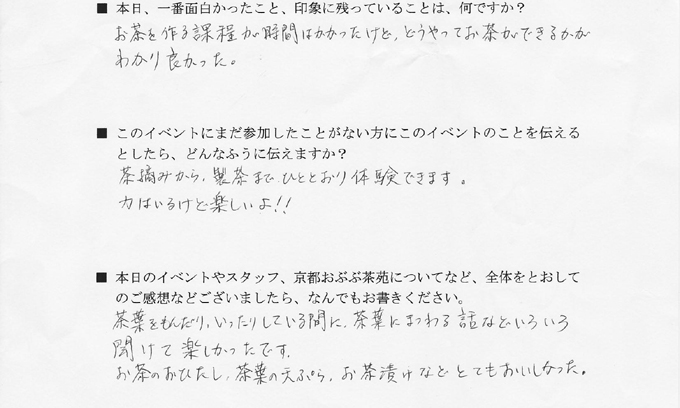 ■ 本日、一番面白かったこと、印象に残っていることは、何ですか？
お茶を作る課程が時間はかかったけど、どうやってお茶ができるかが
わかり良かった。
■ このイベントにまだ参加したことがない方にこのイベントのことを伝える
としたら、どんなふうに伝えますか？
茶摘みから、製茶までひととおり体験できます。
力はいるけど楽しいよ!!
■ 本日のイベントやスタッフ、京都おぶぶ茶苑についてなど、全体をとおして
のご感想などございましたら、なんでもお書きください。
茶葉をもんだり、いったりしている間に、茶葉にまつわる話などいろいろ
聞けて楽しかったです。
お茶のおひたし、茶葉の天ぷら、お茶漬けなどとてもおいしかった。